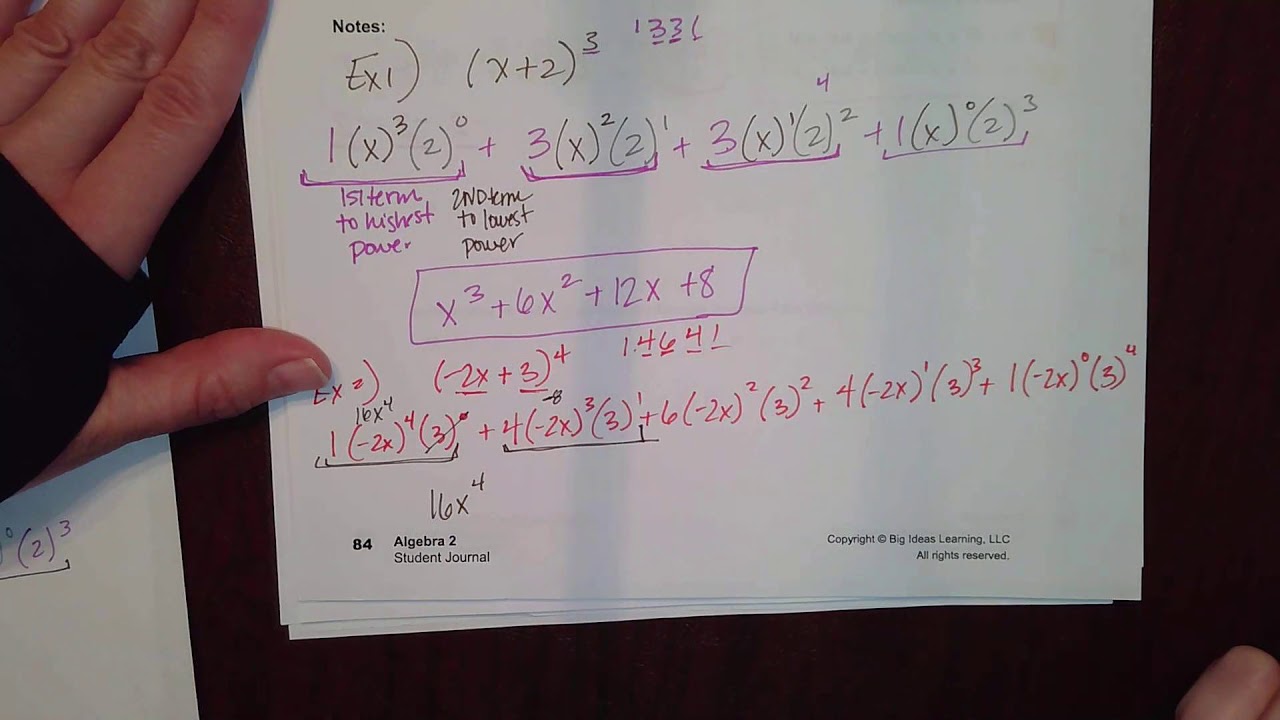 Notes:
1 3 3 1
Ex1) (x+2)³
4
1(x)³(2)⁰ + 3(x)²(2)¹ + 3(x)¹(2)² + 1(x)⁰(2)³
1st term 2ND term
to highest to lowest
power power
x³+6x²+12x+8
1 4 6 4 1
Ex 2) (-2x+3)⁴
16x⁴ -8
1(-2x)⁴(3)⁰ + 4(-2x)³(3)¹+6(-2x)²(3)²+ 4(-2x)¹(3)³+ 1(-2x)⁰(3)⁴
16x⁴
⁰(2)³
84 Algebra 2
Student Journal
Copyright © Big Ideas Learning, LLC
All rights reserved.